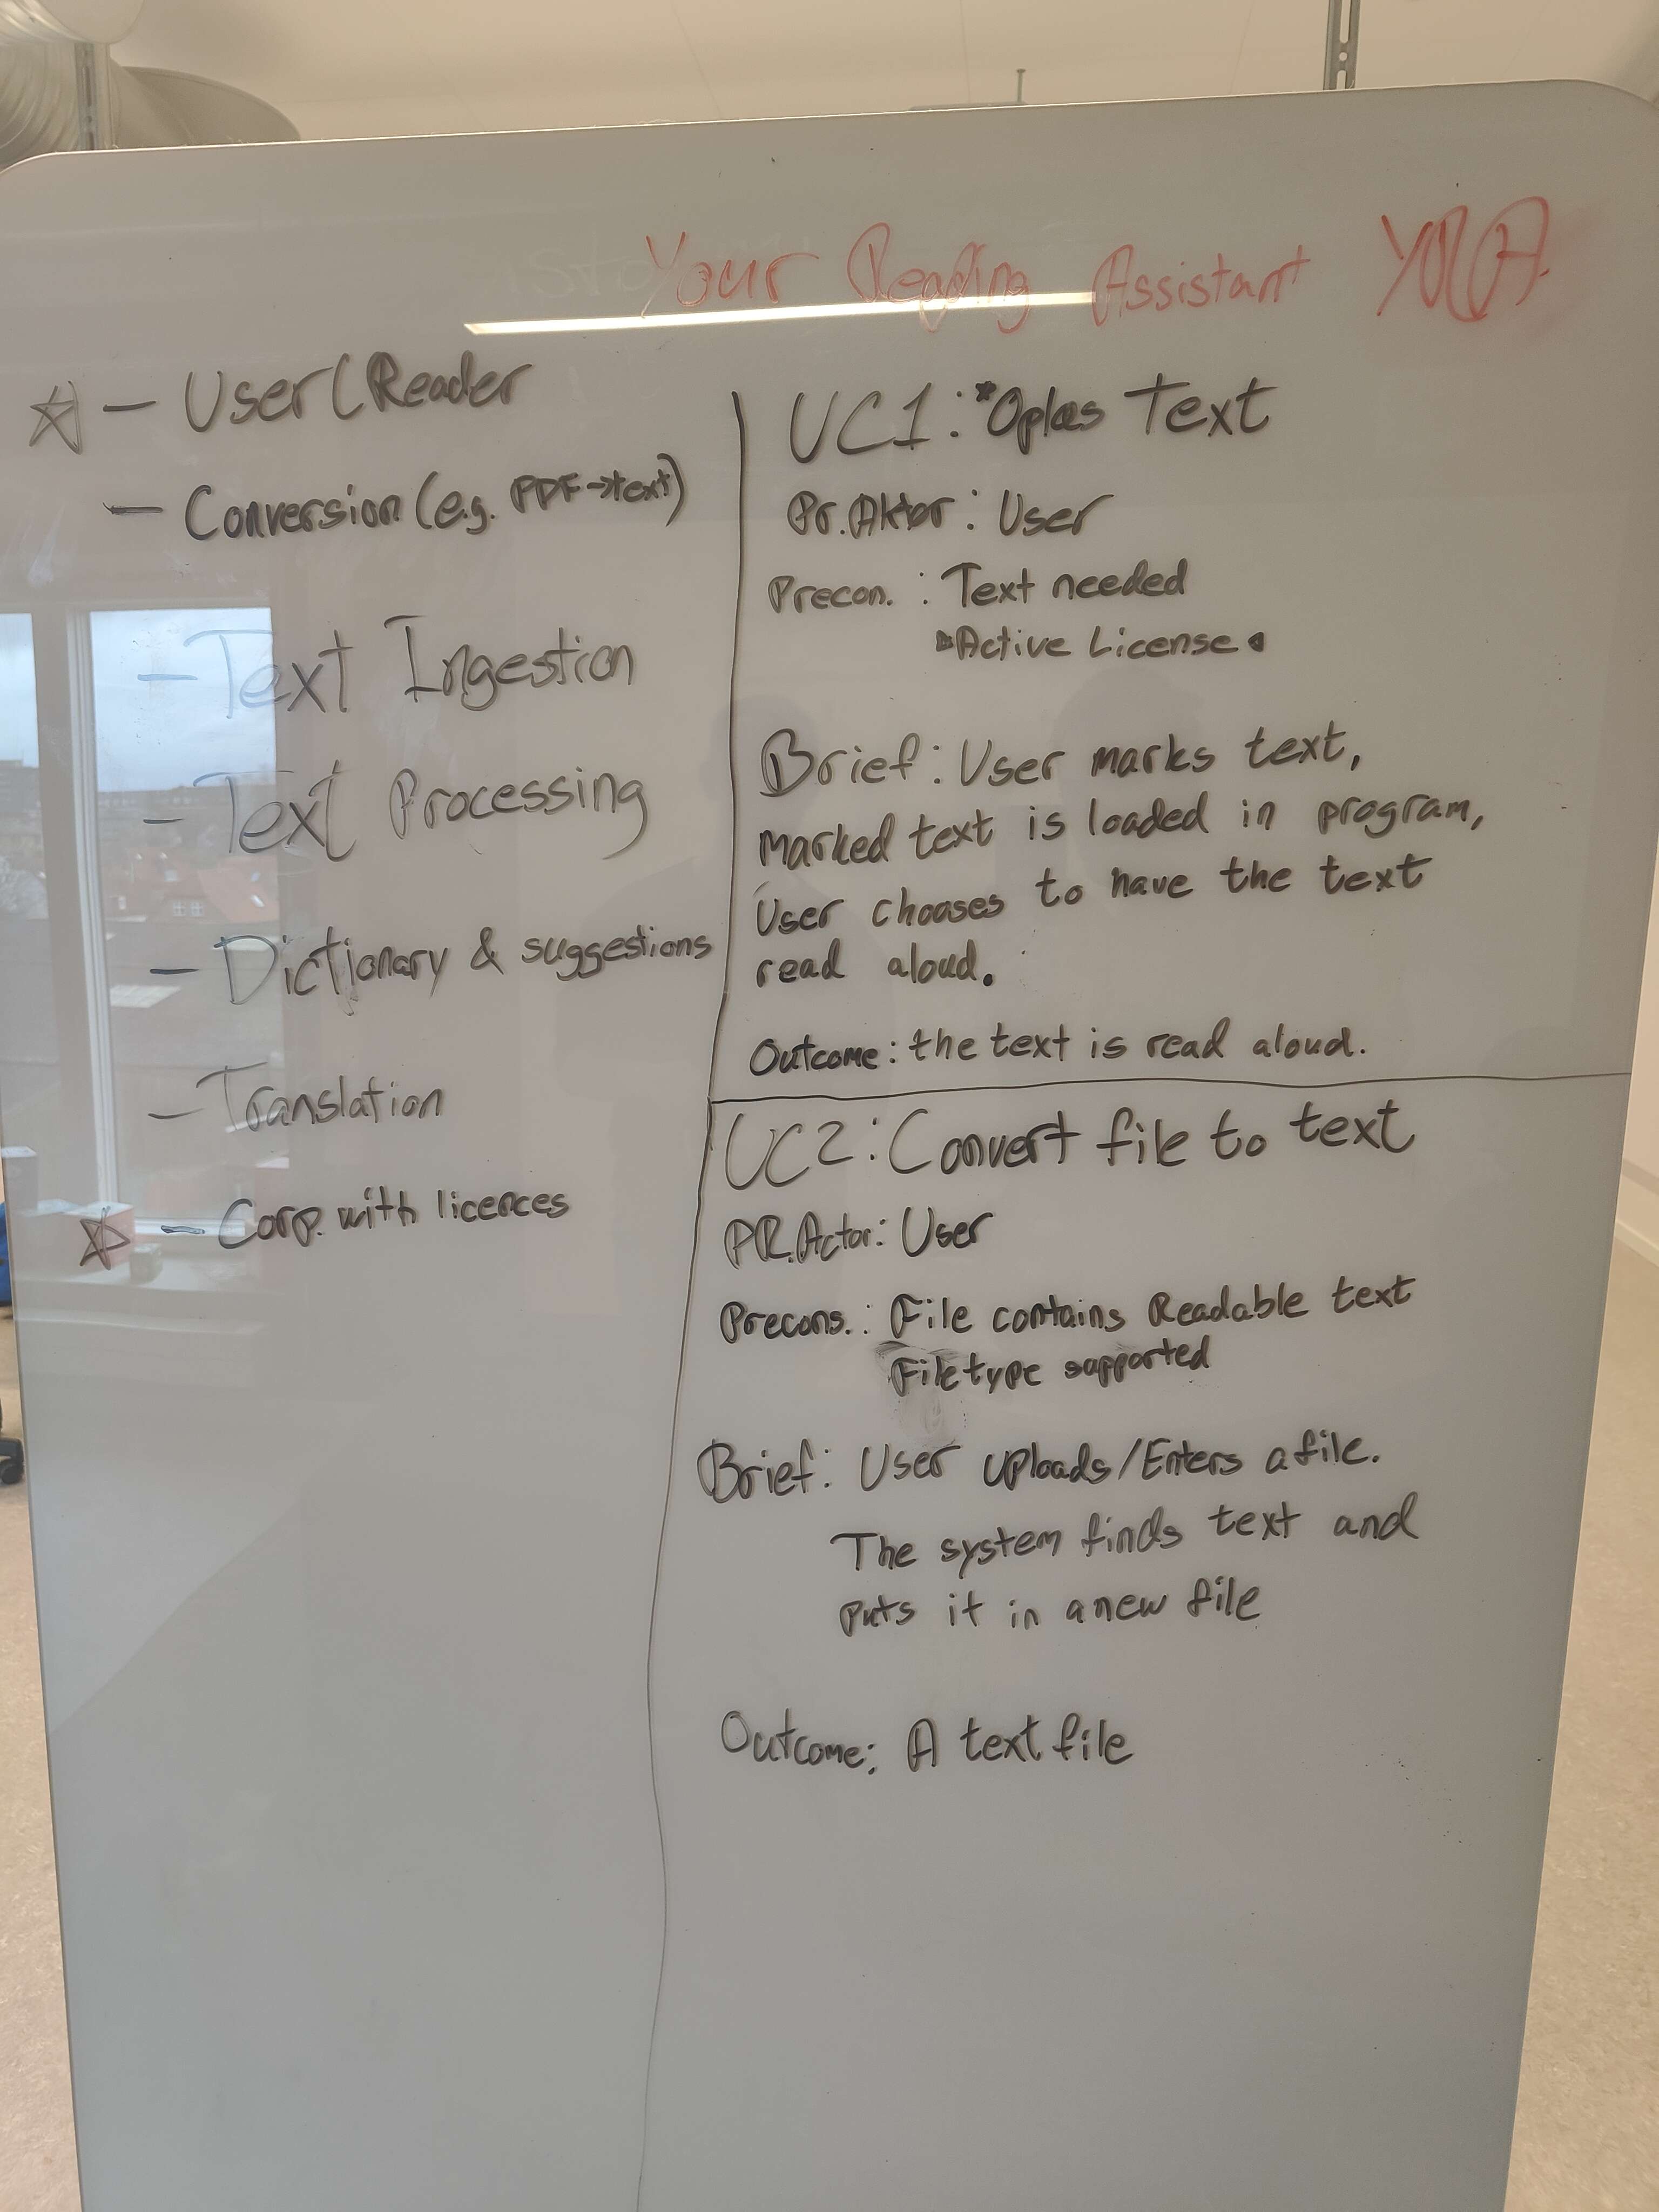 Your Reading Assistant YRA
☆ - User (Reader
- Conversion (e.g. PDF→text)
- Text Ingestion
- Text Processing
- Dictionary & suggestions
- Translation
☆ - Corp. with licences
UC1: "Oplæs Text
Pr. Aktor: User
Precon. : Text needed
"Active License"
Brief: User marks text,
marked text is loaded in program,
User chooses to have the text
read aloud.
Outcome: the text is read aloud.
UC2: Convert file to text
PR. Actor: User
Precons.: File contains Readable text
Filetype supported
Brief: User uploads/Enters a file.
The system finds text and
puts it in a new file
Outcome: A text file